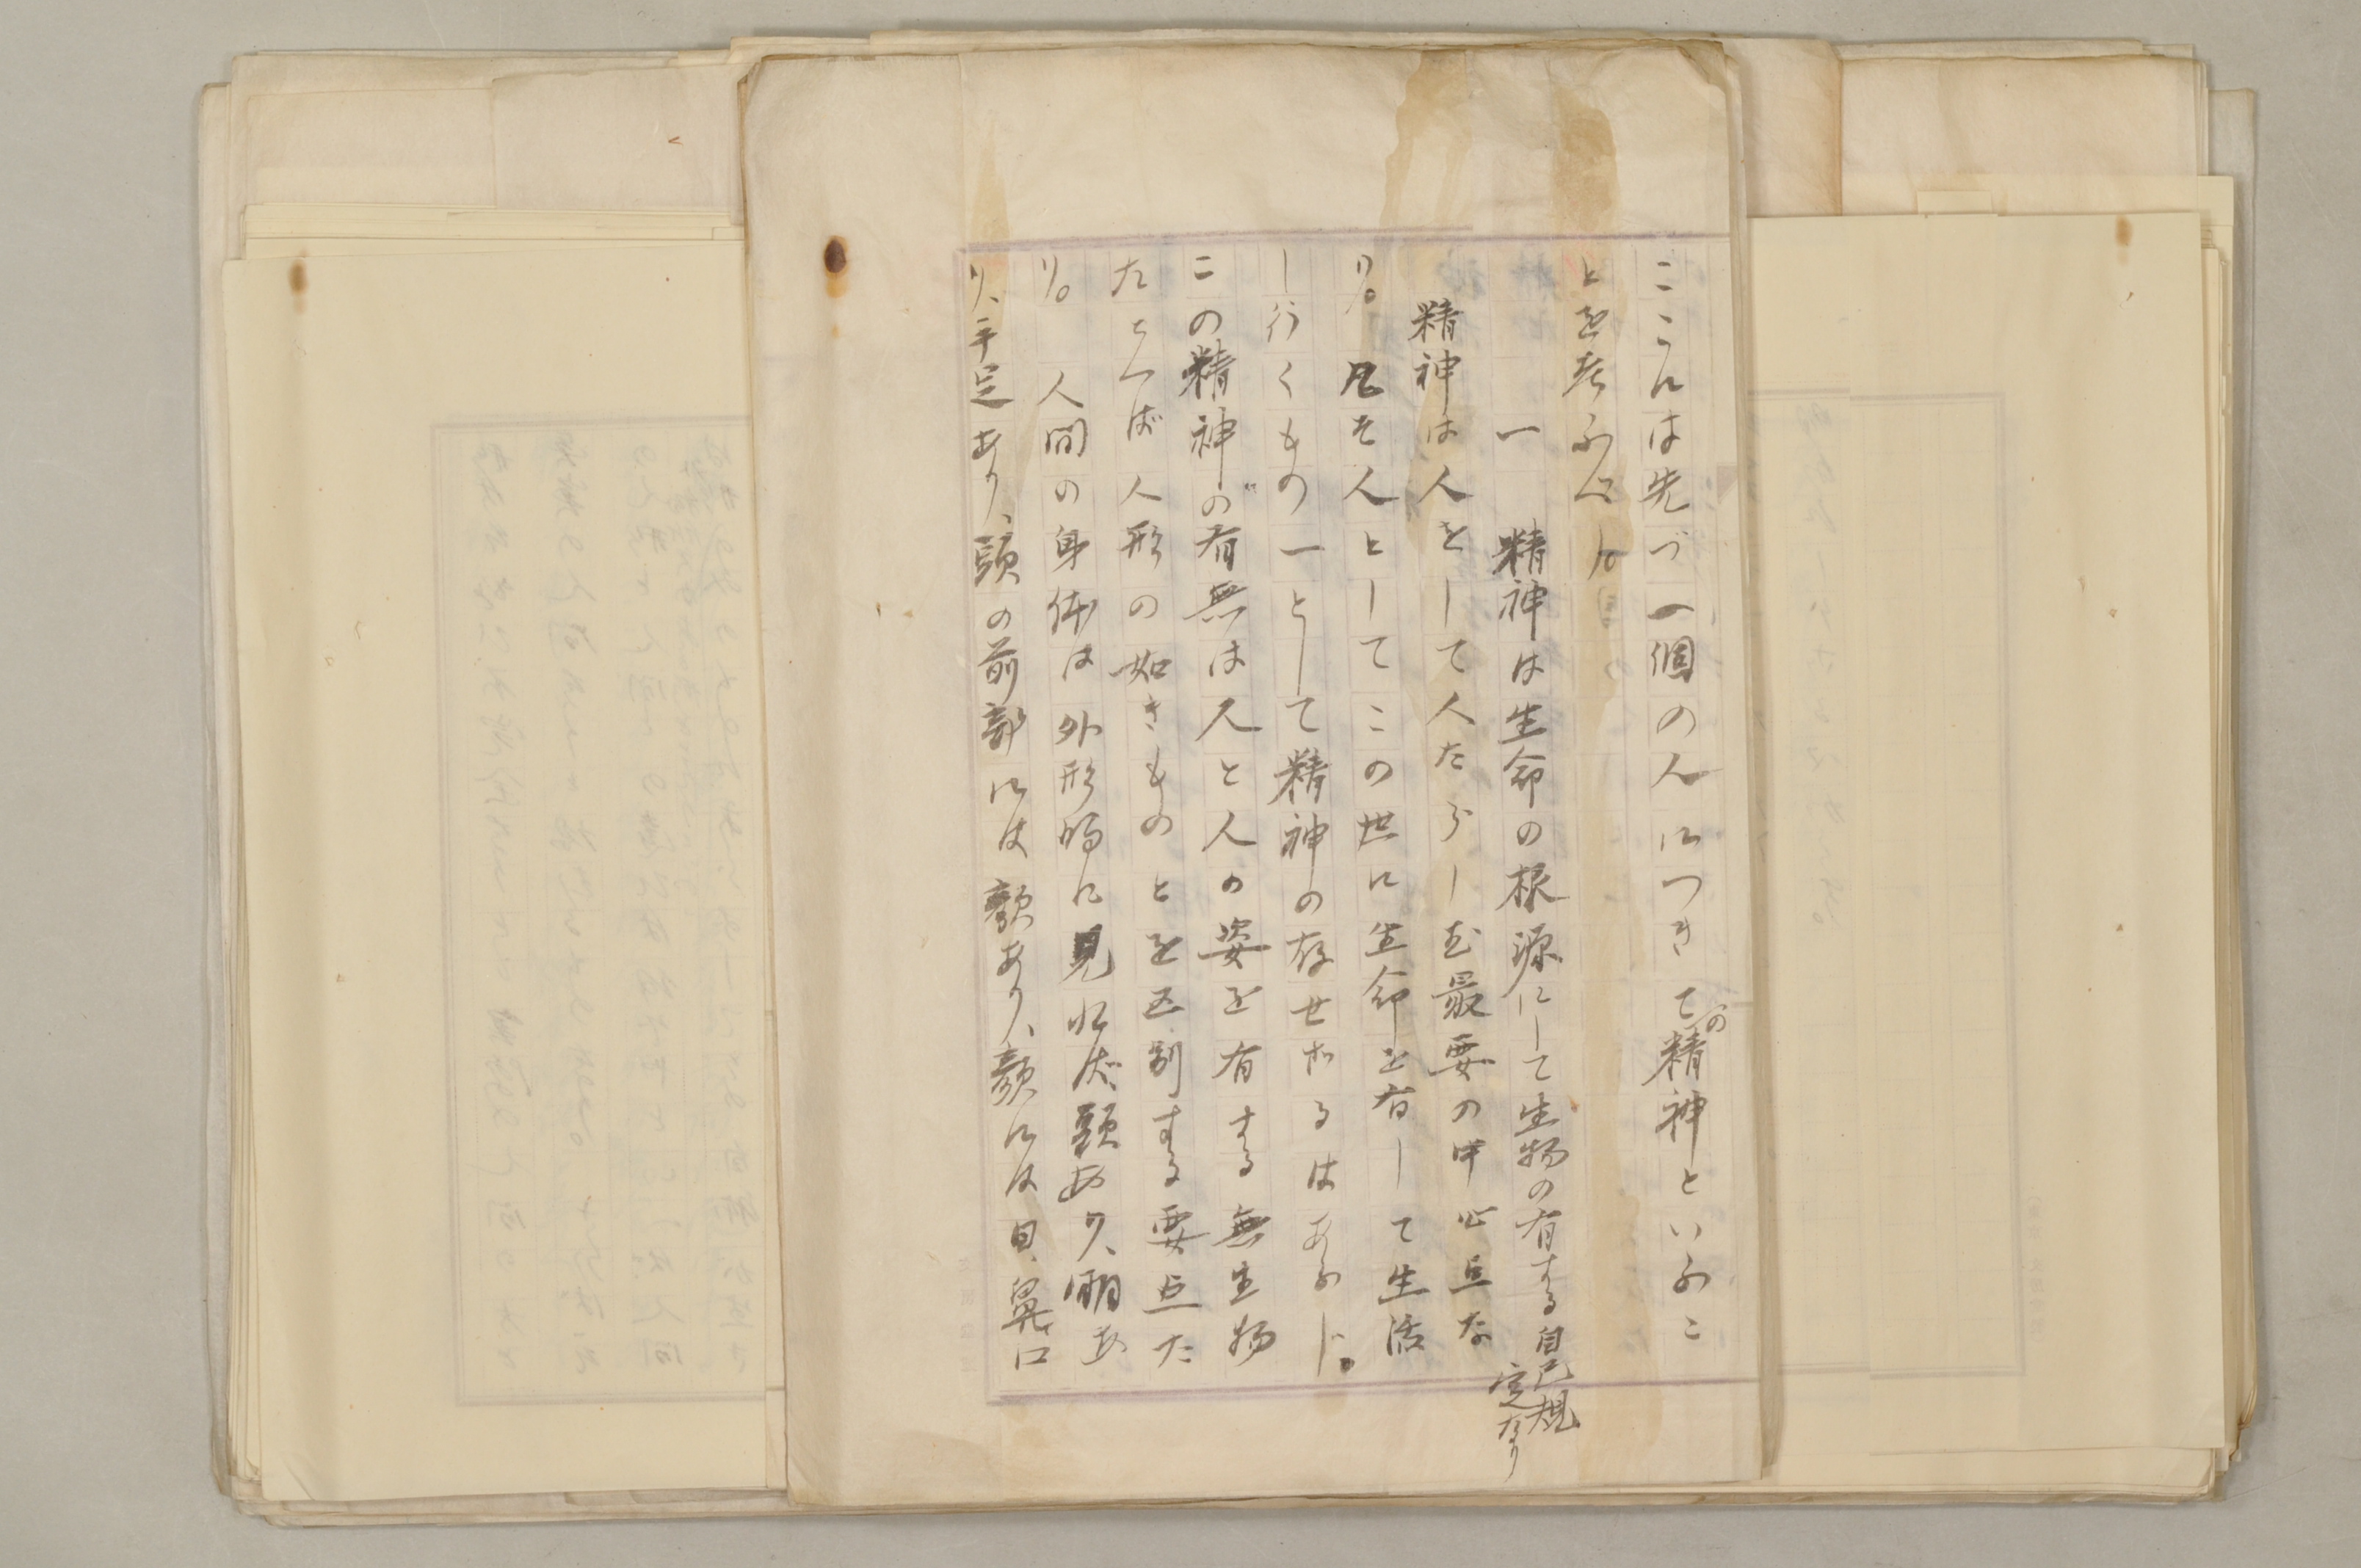 ここには先づ一個の人につきての精神といふこ
とを考ふべし。
一 精神は生命の根源にして生物の有する自己規定なり
精神は人をして人たらしむ最要の中心点な
り。凡そ人としてこの世に生命を有して生活
し行くもの一として精神の存せざるはあらじ。
この精神の有無は人と人の姿を有する無生物
たとへば人形の如きものとを区別する要点た
り。 人間の身体は外形的に見れば、頭あり、胴あ
り、手足あり、頭の前部には顔あり、顔には目、鼻、口